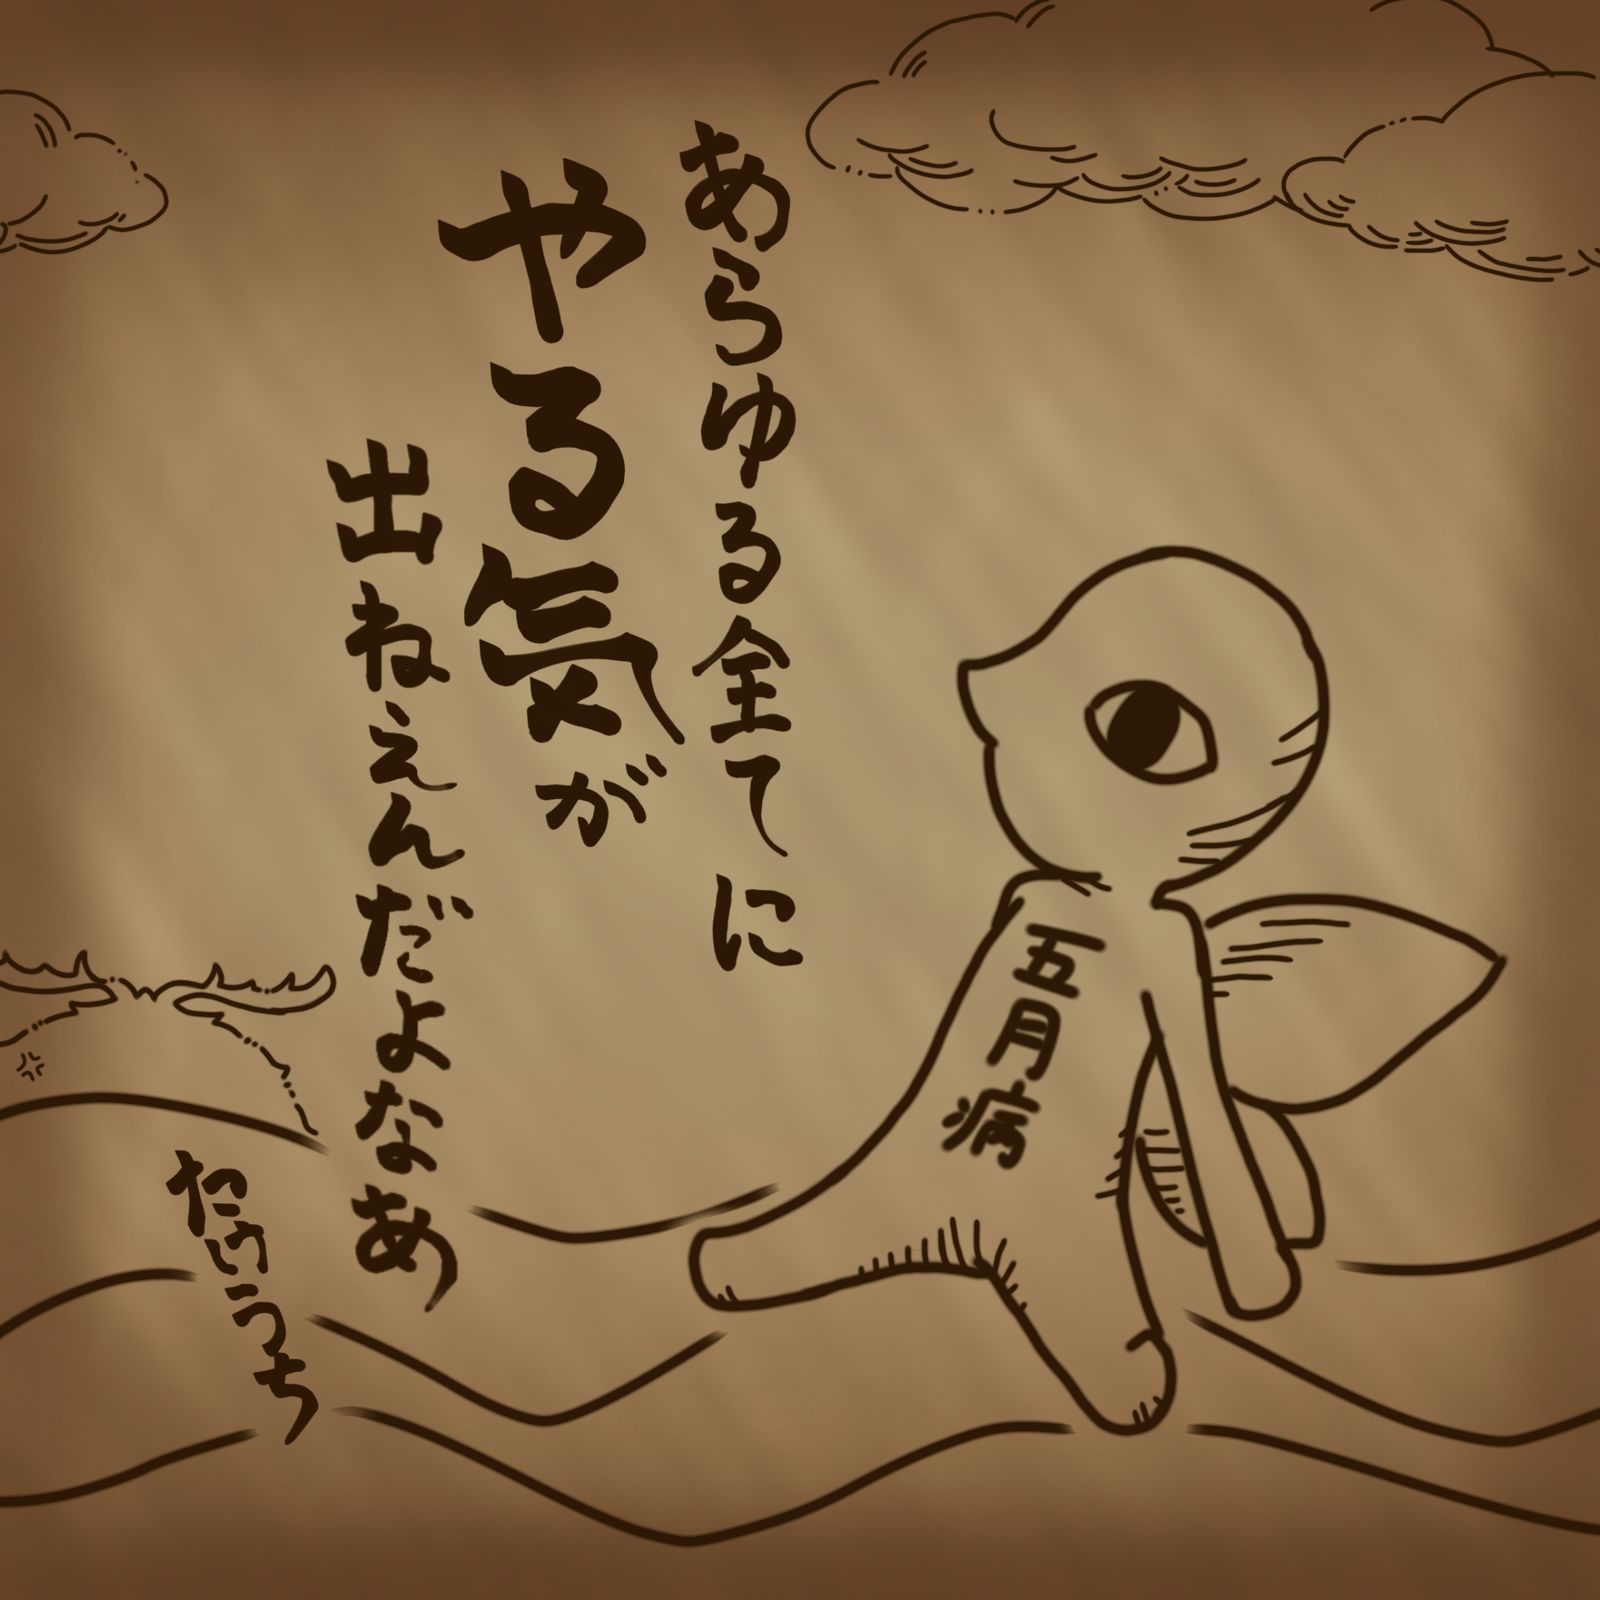 あらゆる全てに
やる気が
出ねえんだよなあ
たけうち
五月病